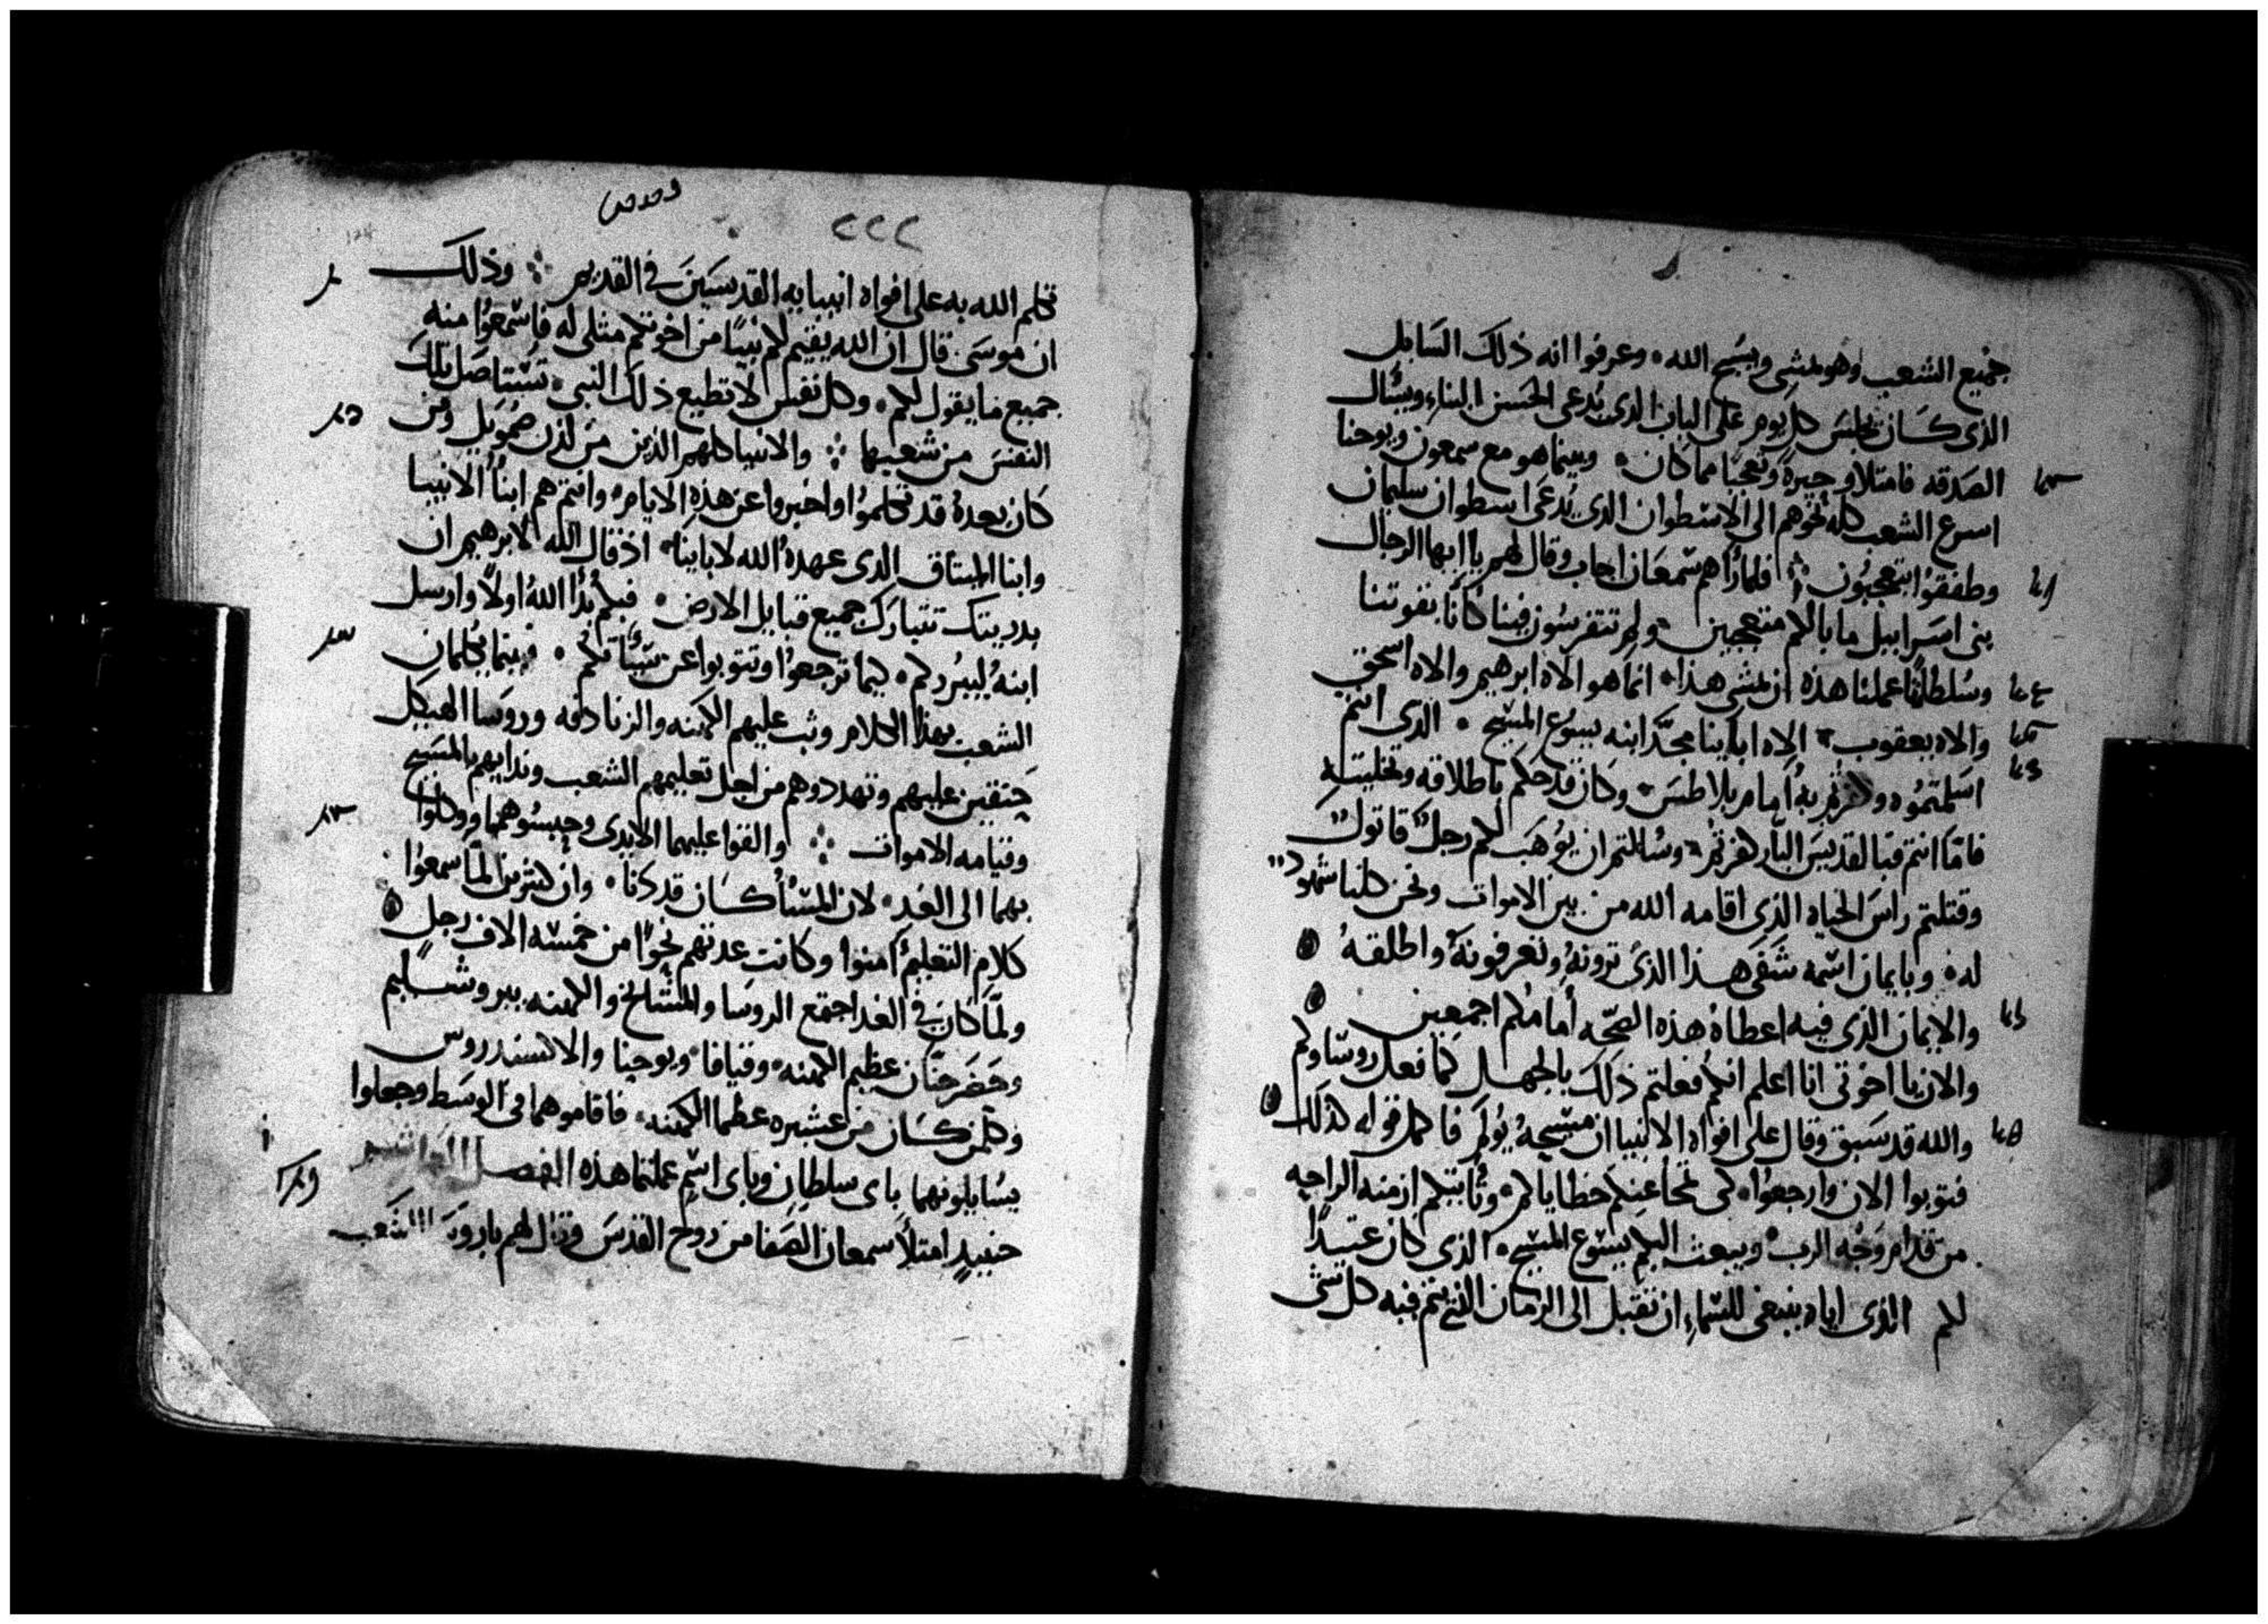 جميع الشعب وهو يمشى ويسبح الله وعرفوا انه ذلك السايل
الذى كان يجلس كل يوم على الباب الذى يدعى الحسن البناء ويسال
الصدقه فامتلاو حيرة وتعجبا مما كان وبينما هو مع سمعون ويوحنا
اسرع الشعب كله نحوهم الى الاسطوان الذى يدعى اسطوان سليمان
وطفقوا يتعجبون فلما راهم سمعان اجاب وقال لهم يا ايها الرجال
بنى اسراييل ما بالكم متعجبين ولم تتفرسون فينا كانا بقوتنا
وسلطاننا عملنا هذه ان يمشى هذا انما هو الاه ابرهيم والاه اسحق
والاه يعقوب الاه اباينا مجد ابنه يسوع المسيح الذى انتم
اسلمتموه وكفرتم به امام بيلاطس وكان قد حكم باطلاقه وتخليته
فاما انتم فبالقديس البار كفرتم وسالتم ان يوهب لكم رجل قاتول
وقتلتم راس الحياه الذى اقامه الله من بين الاموات ونحن كلنا شهود
له وبايمان اسمه شفى هذا الذى ترونه وتعرفونه واطلقه
والايمان الذى فيه اعطاه هذه الصحه امامكم اجمعين
والان يا اخوتى انا اعلم انكم فعلتم ذلك بالجهل كما فعل روساوكم
والله قد سبق وقال على افواه الانبيا ان مسيحه يولم فاكمل قوله كذلك
فتوبوا الان وارجعوا كى تمحا عنكم خطاياكم وتاتيكم ازمنه الراحه
من قدام وجه الرب ويبعث اليكم يسوع المسيح الذى كان عتيدا
لكم الذى اياه ينبغى للسماء ان تقبل الى الزمان الذى يتم فيه كل شى
٢٢٢
تكلم الله به على افواه انبيايه القديسين فى القديم وذلك
ان موسى قال ان الله يقيم لكم نبيا من اخوتكم مثلى له فاسمعوا منه
جميع ما يقول لكم وكل نفس لا تطيع ذلك النبى تستاصل تلك
النفس من شعبها والانبيا كلهم الذين من لدن صمويل ومن
كان بعده قد تكلموا واخبروا عن هذه الايام وانتم هم ابنا الانبيا
وابنا الميتاق الذى عهده الله لاباينا اذ قال الله لابرهيم ان
بدريتك تتبارك جميع قبايل الارض فبكم بدا الله اولا وارسل
ابنه ليبردكم كيما ترجعوا وتتوبوا عن سياتكم فبينما يكلمان
الشعب بهذا الكلام وثب عليهم الكهنه والزنادقه وروسا الهيكل
حنقين عليهم وتهددوهم من اجل تعليمهم الشعب وندايهم بالمسيح
وقيامه الاموات والقوا عليهما الايدى وحبسوهما ووكلوا
بهما الى الغد لان المسا كان قد دنا وان كثيرين لما سمعوا
كلام التعليم امنوا وكانت عدتهم نحوا من خمسه الاف رجل
ولما كان فى الغد اجتمع الروسا والمشايخ والكهنه بيروشليم
وحضر حنان عظيم الكهنه وقيافا ويوحنا والاكسندروس
وكلمن كان من عشيره عظما الكهنه فاقاموهما فى الوسط وجعلوا
يسايلونهما باى سلطان وباى اسم عملتما هذه الفصل
حينيذ امتلا سمعان الصفا من روح القدس وقال لهم يا روسا الشعب